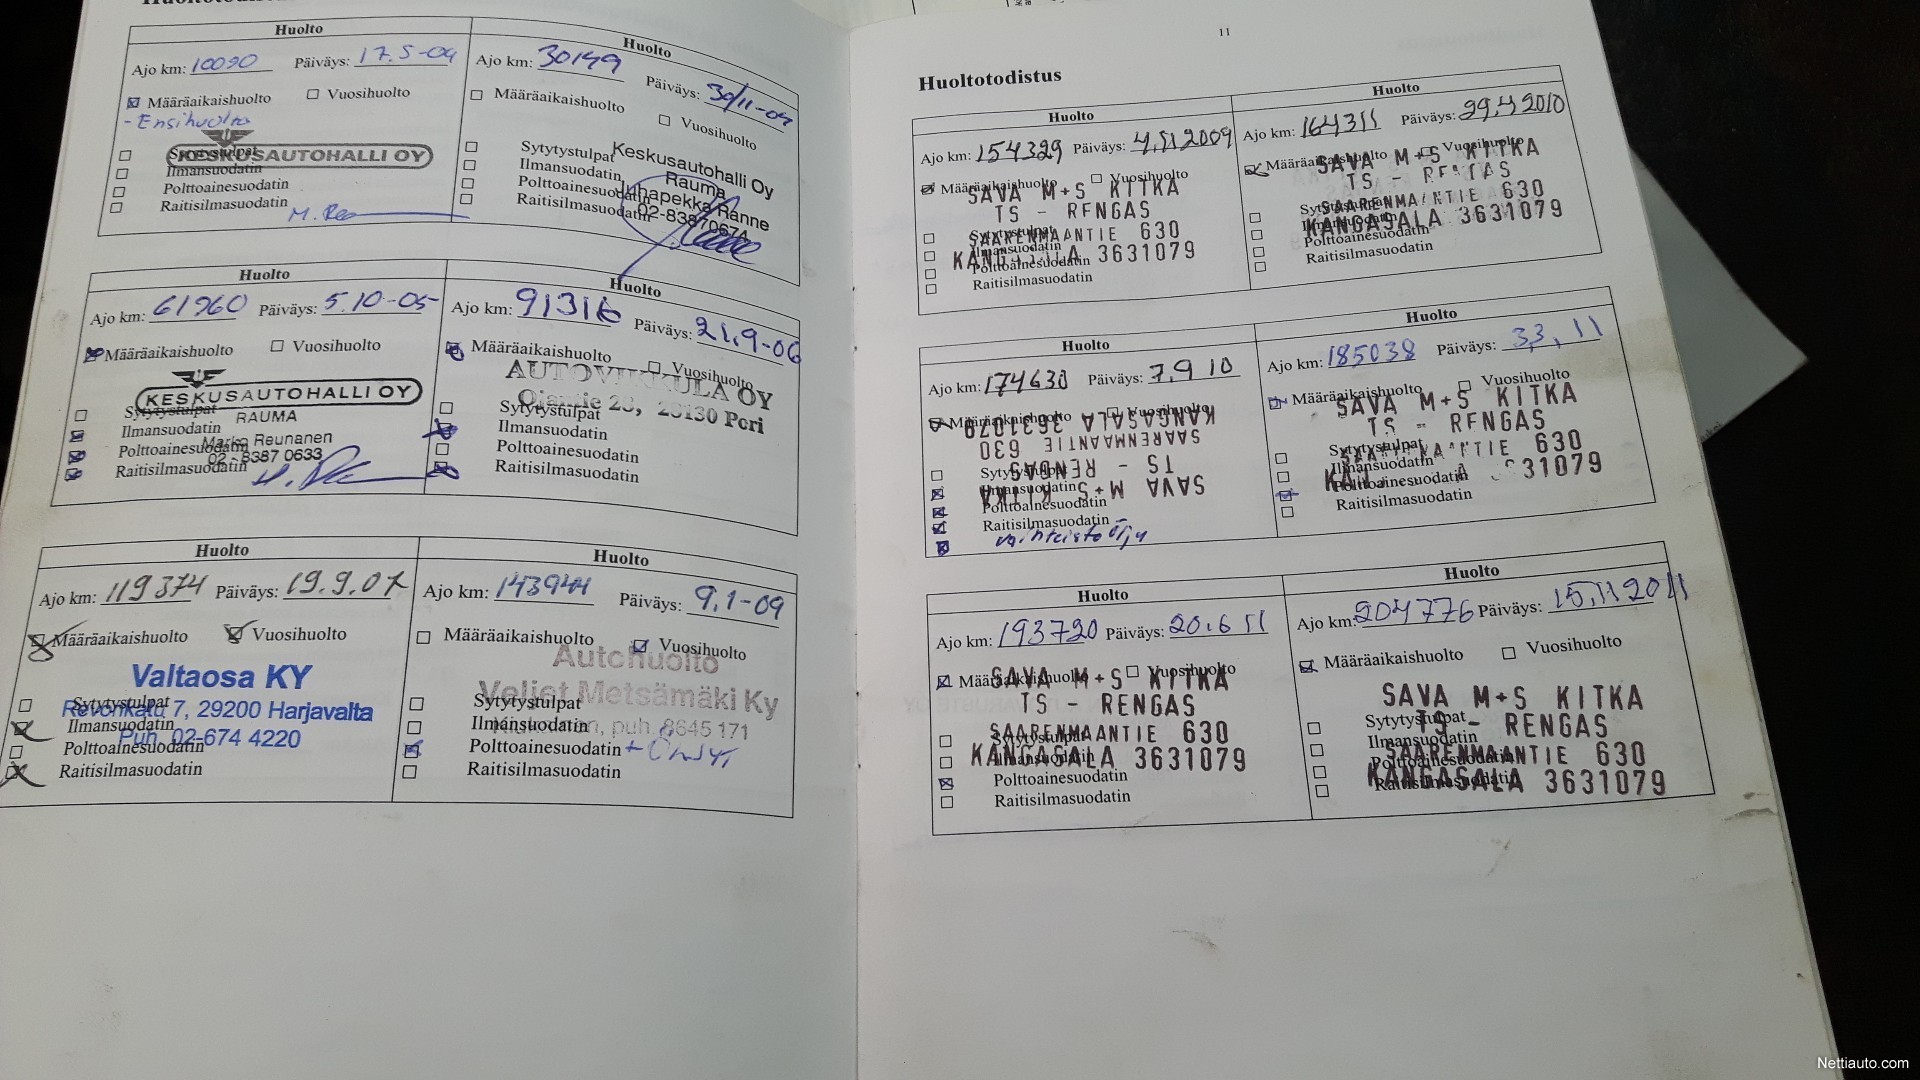 Huolto
Ajo km: 10090 Päiväys: 17.5-04
Määräaikaishuolto Vuosihuolto
- Ensihuolto
KESKUSAUTOHALLI OY
Sytytystulpat
Ilmansuodatin
Polttoainesuodatin
Raitisilmasuodatin
Huolto
Ajo km: 30149 Päiväys: 30/11-04
Määräaikaishuolto Vuosihuolto
Keskusautohalli Oy
Rauma
Juhapekka Ranne
02-83870674
Sytytystulpat
Ilmansuodatin
Polttoainesuodatin
Raitisilmasuodatin
Huolto
Ajo km: 61960 Päiväys: 5.10-05
Määräaikaishuolto Vuosihuolto
KESKUSAUTOHALLI OY
RAUMA
Marko Reunanen
02 - 8387 0633
Sytytystulpat
Ilmansuodatin
Polttoainesuodatin
Raitisilmasuodatin
Huolto
Ajo km: 91316 Päiväys: 21.9-06
Määräaikaishuolto Vuosihuolto
AUTOVIKKULA OY
Ojantie 23, 28130 Pori
Sytytystulpat
Ilmansuodatin
Polttoainesuodatin
Raitisilmasuodatin
Huolto
Ajo km: 119374 Päiväys: 19.9.07
Määräaikaishuolto Vuosihuolto
Valtaosa KY
Revonkatu 7, 29200 Harjavalta
Puh. 02-674 4220
Sytytystulpat
Ilmansuodatin
Polttoainesuodatin
Raitisilmasuodatin
Huolto
Ajo km: 143944 Päiväys: 9.1-09
Määräaikaishuolto Vuosihuolto
Autohuolto
Veljet Metsämäki Ky
puh. 8645 171
Sytytystulpat
Ilmansuodatin
Polttoainesuodatin + Öljyt
Raitisilmasuodatin
11
Huoltotodistus
Huolto
Ajo km: 154329 Päiväys: 4.11.2009
Määräaikaishuolto Vuosihuolto
SAVA M+S KITKA
TS - RENGAS
SAARENMAANTIE 630
KANGASALA 3631079
Sytytystulpat
Ilmansuodatin
Polttoainesuodatin
Raitisilmasuodatin
Huolto
Ajo km: 164311 Päiväys: 29.4 2010
Määräaikaishuolto Vuosihuolto
SAVA M+S KITKA
TS - RENGAS
SAARENMAANTIE 630
KANGASALA 3631079
Sytytystulpat
Ilmansuodatin
Polttoainesuodatin
Raitisilmasuodatin
Huolto
Ajo km: 174630 Päiväys: 7.9 10
Määräaikaishuolto Vuosihuolto
SAVA M+S KITKA
TS - RENGAS
SAARENMAANTIE 630
KANGASALA 3631079
Sytytystulpat
Ilmansuodatin
Polttoainesuodatin
Raitisilmasuodatin
vaihteistoöljy
Huolto
Ajo km: 185038 Päiväys: 3.3. 11
Määräaikaishuolto Vuosihuolto
SAVA M+S KITKA
TS - RENGAS
SAARENMAANTIE 630
KANGASALA 3631079
Sytytystulpat
Ilmansuodatin
Polttoainesuodatin
Raitisilmasuodatin
Huolto
Ajo km: 193720 Päiväys: 20.6 11
Määräaikaishuolto Vuosihuolto
SAVA M+S KITKA
TS - RENGAS
SAARENMAANTIE 630
KANGASALA 3631079
Sytytystulpat
Ilmansuodatin
Polttoainesuodatin
Raitisilmasuodatin
Huolto
Ajo km: 204776 Päiväys: 15.11.2011
Määräaikaishuolto Vuosihuolto
SAVA M+S KITKA
TS - RENGAS
SAARENMAANTIE 630
KANGASALA 3631079
Sytytystulpat
Ilmansuodatin
Polttoainesuodatin
Raitisilmasuodatin
Nettiauto.com